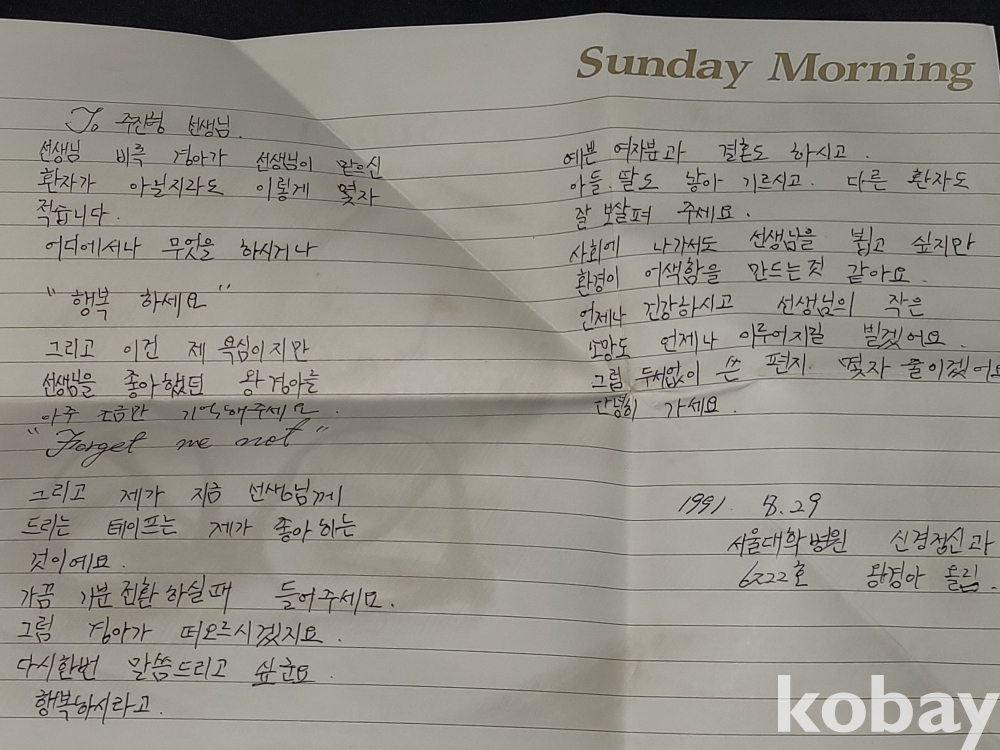 Sunday Morning
To 주진형 선생님.
선생님 비록 경아가 선생님이 맡으신
환자가 아닐지라도 이렇게 몇자
적습니다.
어디에서나 무엇을 하시거나
"행복 하세요"
그리고 이건 제 욕심이지만
선생님을 좋아했던 왕경아를
아주 조금만 기억해주세요.
"Forget me not"
그리고 제가 지금 선생님께
드리는 테이프는 제가 좋아하는
것이에요.
가끔 기분전환 하실때 들어주세요.
그럼 경아가 떠오르시겠지요.
다시한번 말씀드리고 싶군요
행복하시라고.
예쁜 여자분과 결혼도 하시고.
아들.딸도 낳아 기르시고. 다른 환자도
잘 보살펴 주세요.
사회에 나가서도 선생님을 뵙고 싶지만
환경이 어색함을 만드는것 같아요.
언제나 건강하시고 선생님의 작은
소망도 언제나 이루어지길 빌겠어요.
그럼 두서없이 쓴 편지. 몇자 줄이겠어요
안녕히 가세요.
1991. 8.29
서울대학병원 신경정신과
6222호 왕경아 올림.
kobay